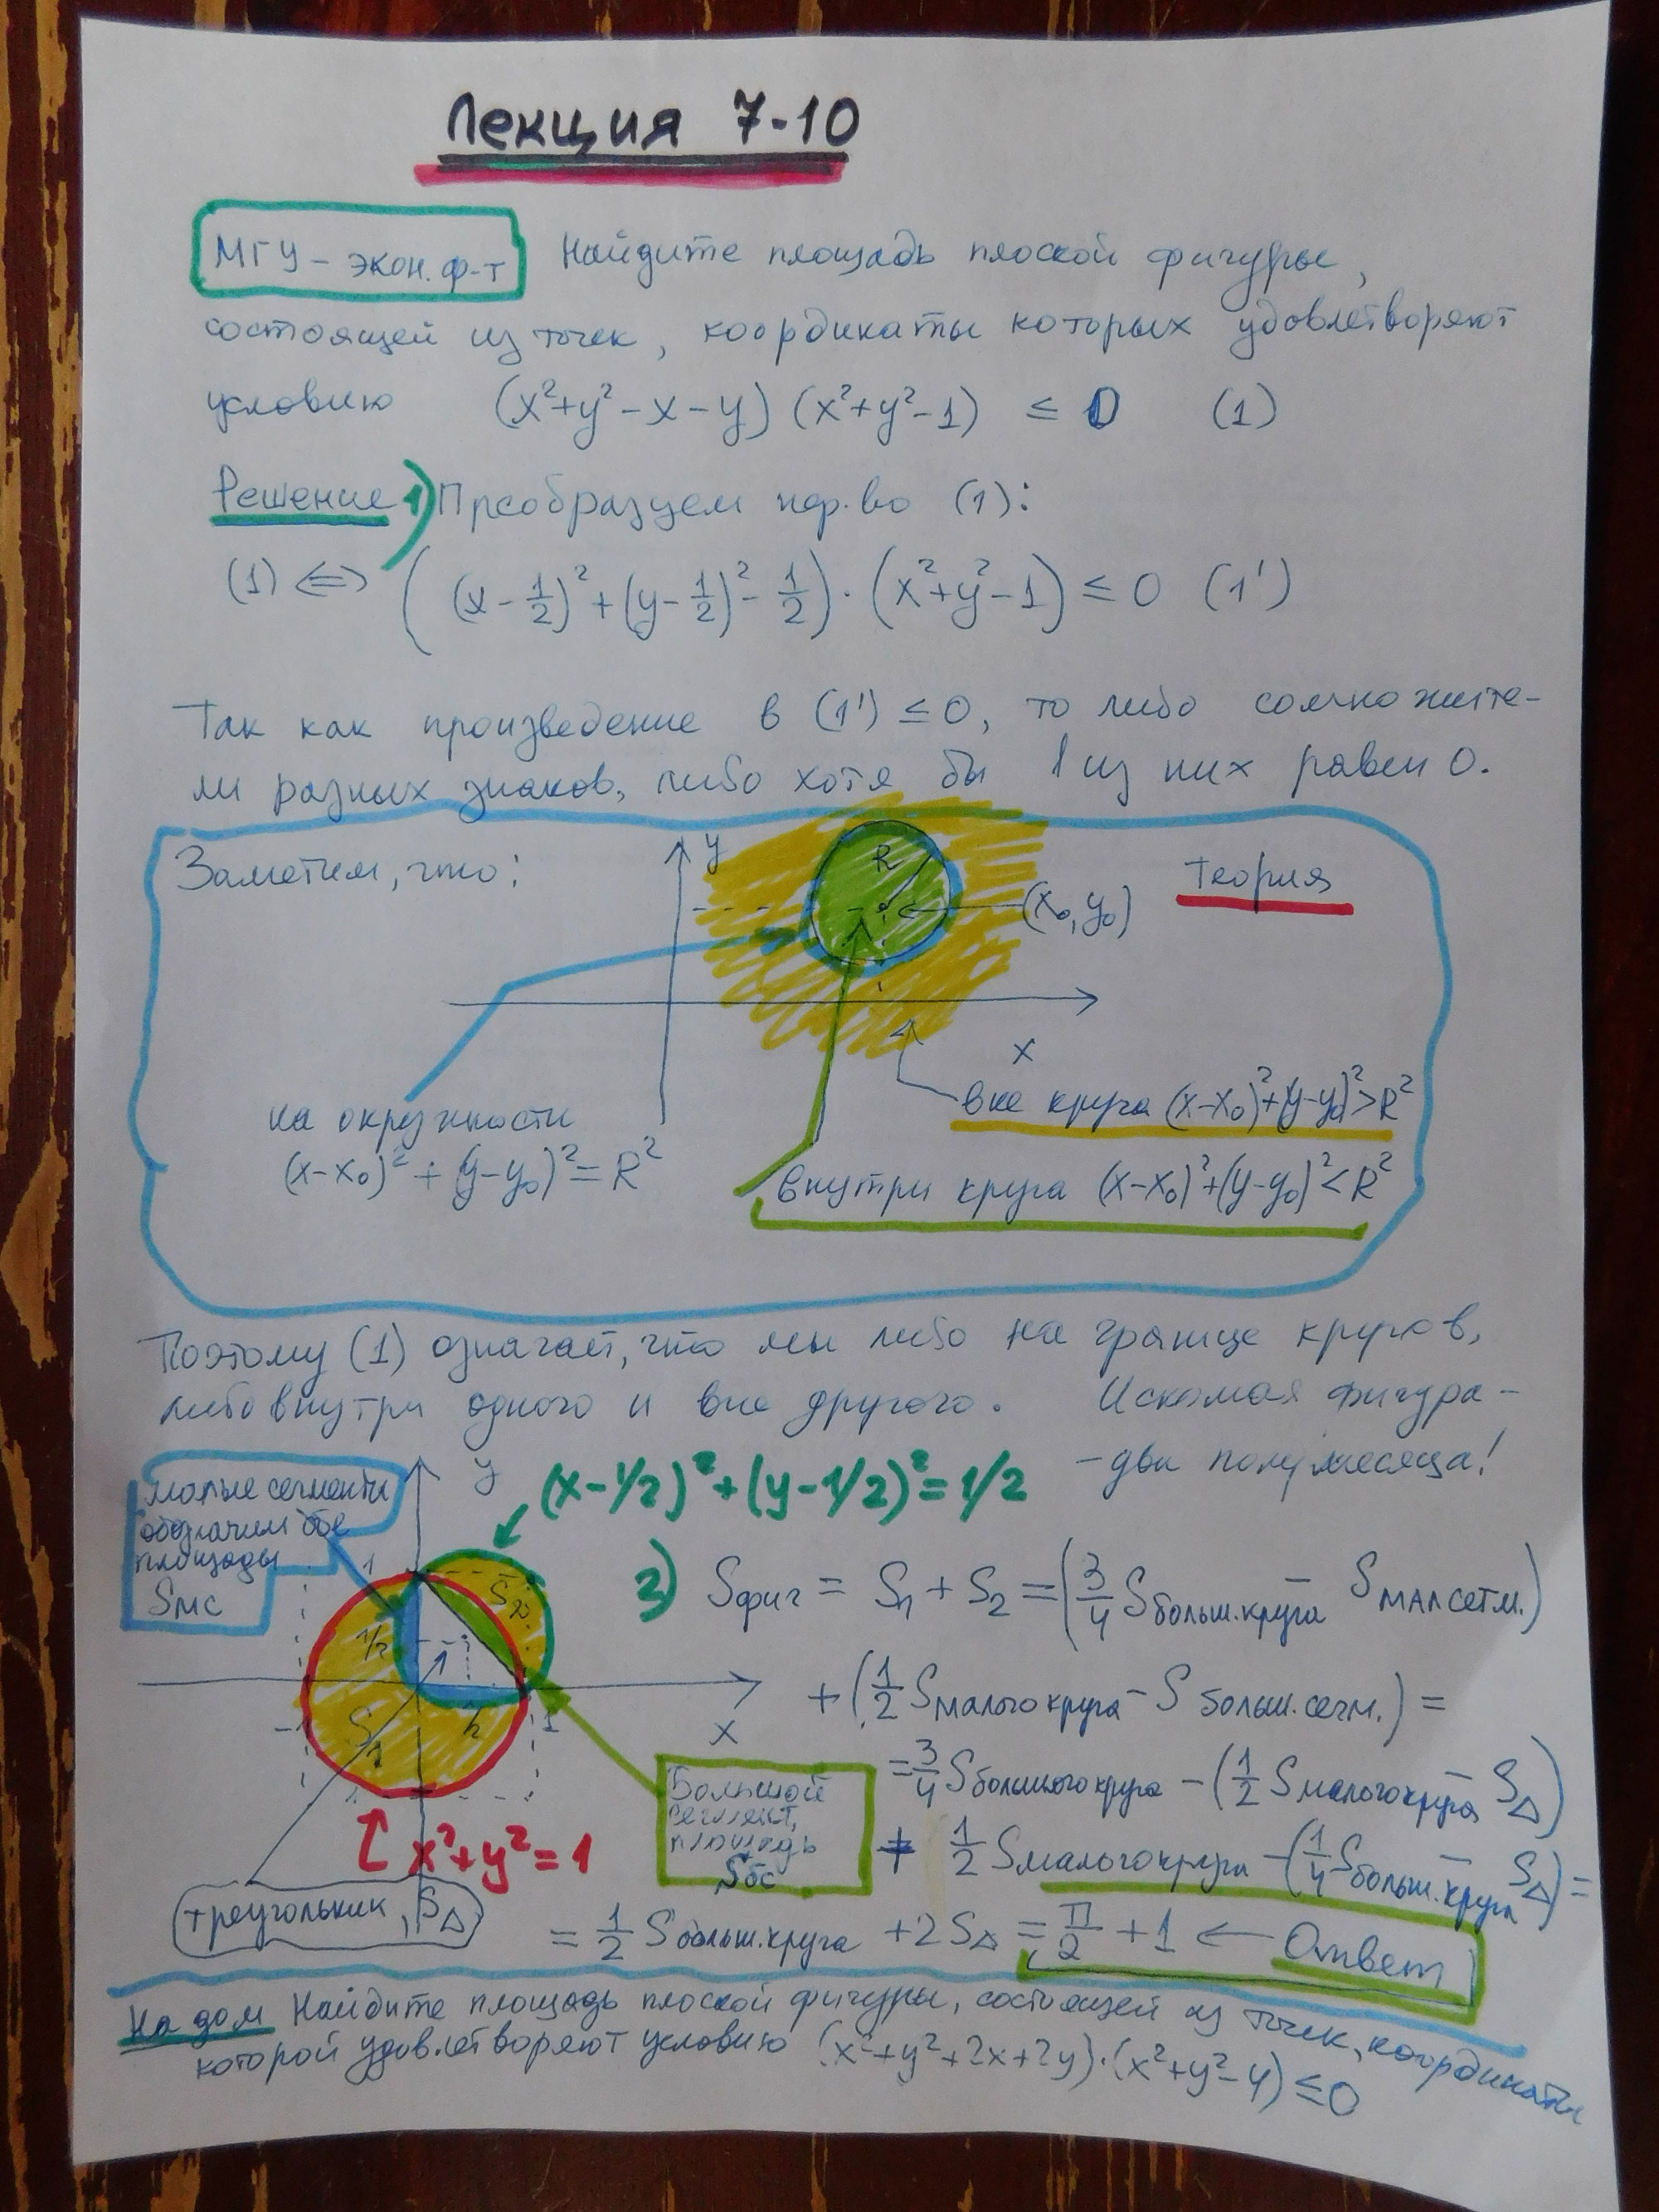 Лекция 7-10
МГУ - экон. ф-т Найдите площадь плоской фигуры,
состоящей из точек, координаты которых удовлетворяют
условию (x²+y²-x-y)(x²+y²-1) ≤ 0 (1)
Решение 1) Преобразуем нер-во (1):
(1) <=> ((x-1/2)²+(y-1/2)²-1/2)·(x²+y²-1) ≤ 0 (1')
Так как произведение в (1') ≤ 0, то либо сомножите-
ли разных знаков, либо хотя бы 1 из них равен 0.
Заметим, что:
y
R
(x₀, y₀)
Теория
x
вне круга (x-x₀)²+(y-y₀)²>R²
на окружности
(x-x₀)²+(y-y₀)²=R²
внутри круга (x-x₀)²+(y-y₀)²<R²
Поэтому (1) означает, что мы либо на границе кругов,
либо внутри одного и вне другого. Искомая фигура -
- два полумесяца!
малые сегменты
обозначим их
площади
Sмс
y
(x-1/2)²+(y-1/2)²=1/2
1
S₂
1/2
-1
S₁
1
x
x²+y²=1
Большой
сегмент,
площадь
Sбс
треугольник, S△
2) Sфиг = S₁ + S₂ = (3/4 Sбольш.круга - Sмал сегм.)
+ (1/2 Sмалого круга - S больш. сегм.) =
= 3/4 Sбольшого круга - (1/2 Sмалого круга - S△)
+ 1/2 Sмалого круга - (1/4 Sбольш.круга - S△) =
= 1/2 Sбольш.круга + 2S△ = π/2 + 1 ← Ответ
На дом Найдите площадь плоской фигуры, состоящей из точек, координаты
которой удовлетворяют условию (x²+y²+2x+2y)·(x²+y²-4) ≤ 0